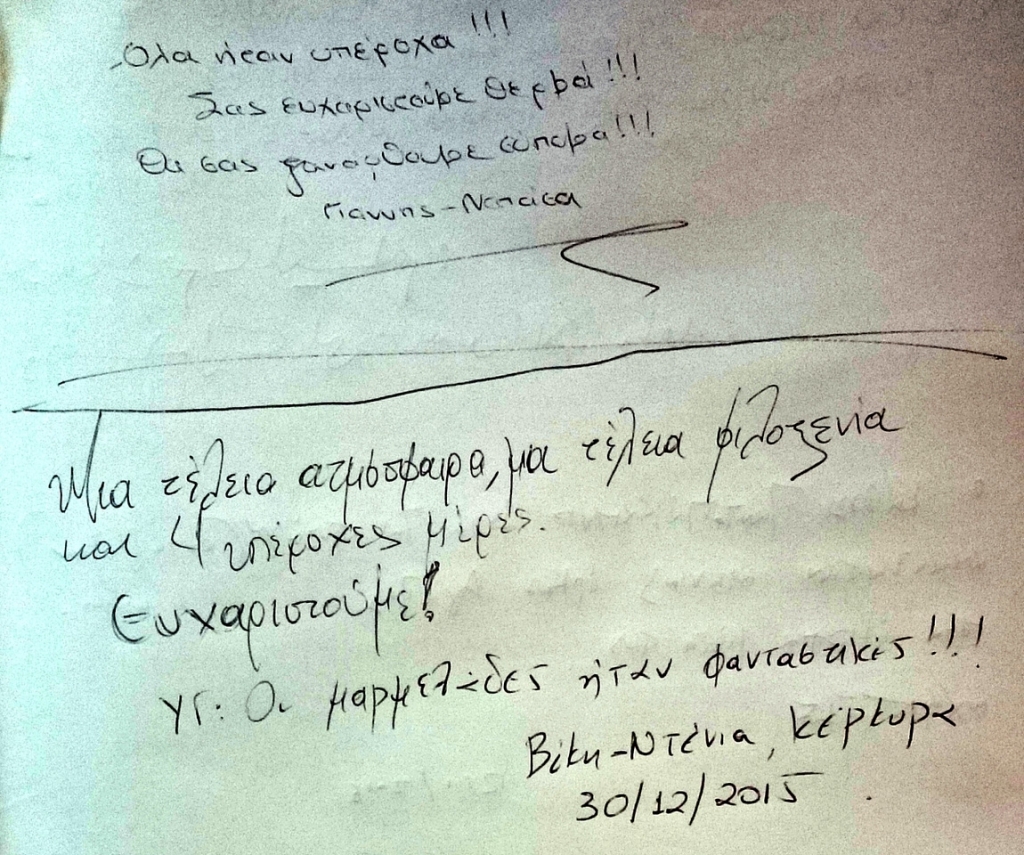 Όλα ήσαν υπέροχα!!!
Σας ευχαριστούμε θερμά!!!
Θα σας ξαναρθουμε σύντομα!!!
Γιάννης-Νατάσα
Μια τέλεια ατμόσφαιρα, μια τέλεια φιλοξενία
και 4 υπέροχες μέρες.
Ευχαριστούμε!
ΥΓ: Οι μαρμελάδες ήταν φανταστικές!!!
Βίκη-Ντένια, Κέρκυρα
30/12/2015